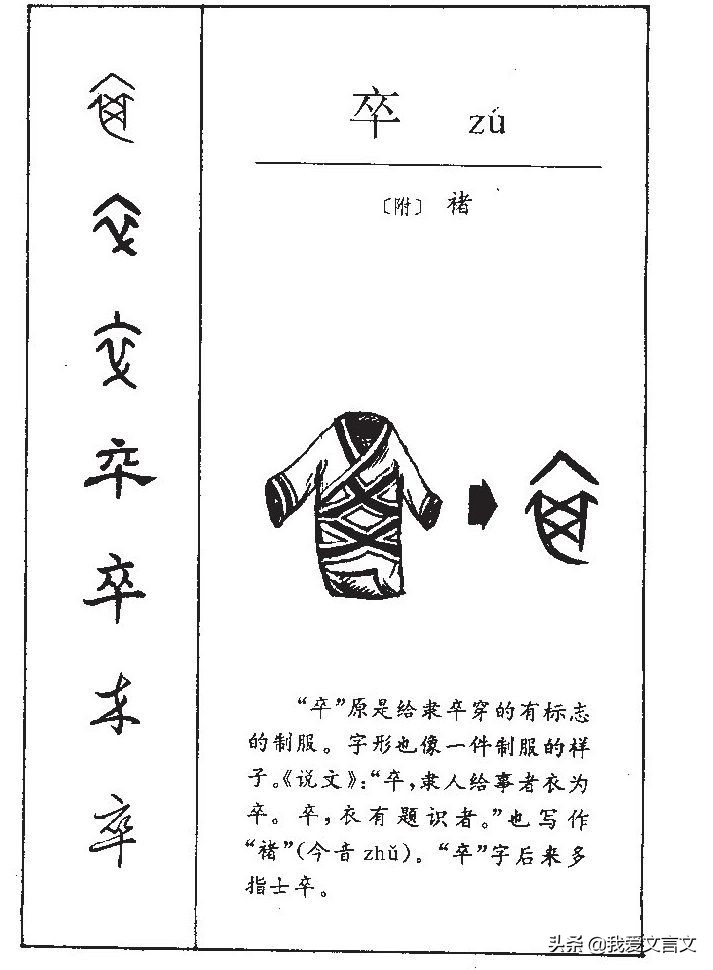 卒 zú
〔附〕 褚
“卒”原是给隶卒穿的有标志
的制服。字形也像一件制服的样
子。《说文》：“卒，隶人给事者衣为
卒。卒，衣有题识者。”也写作
“褚”（今音 zhǔ）。“卒”字后来多
指士卒。
卒
卒
卒
头条 @我爱文言文